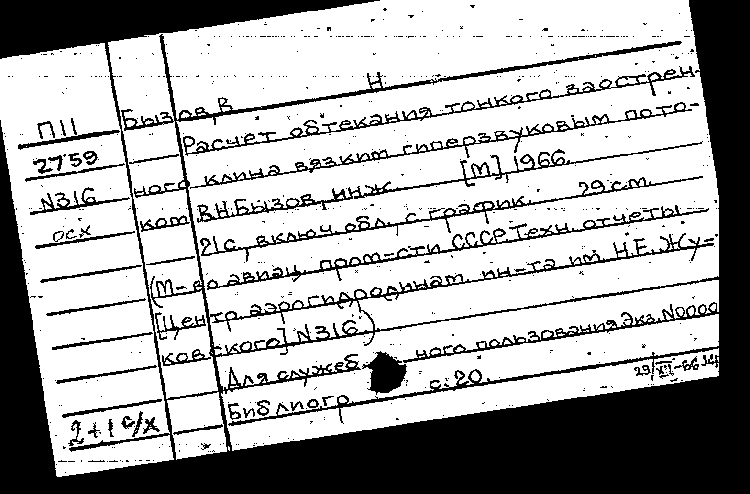 П11 Бызов, В Н
2759 Расчет обтекания тонкого заострен-
N316 ного клина вязким гиперзвуковым пото-
осх ком В.Н. Бызов, инж. [М], 1966.
21 с., включ обл., с график. 29 см.
(М-во авиац. пром=сти СССР. Техн. отчеты
[Центр. аэрогидродинам. ин=та им. Н.Е. Жу=
ковского] N316.)
Для служебного пользования Экз. N0000
2+1 с/х Библиогр. с. 20. 29/XII-66